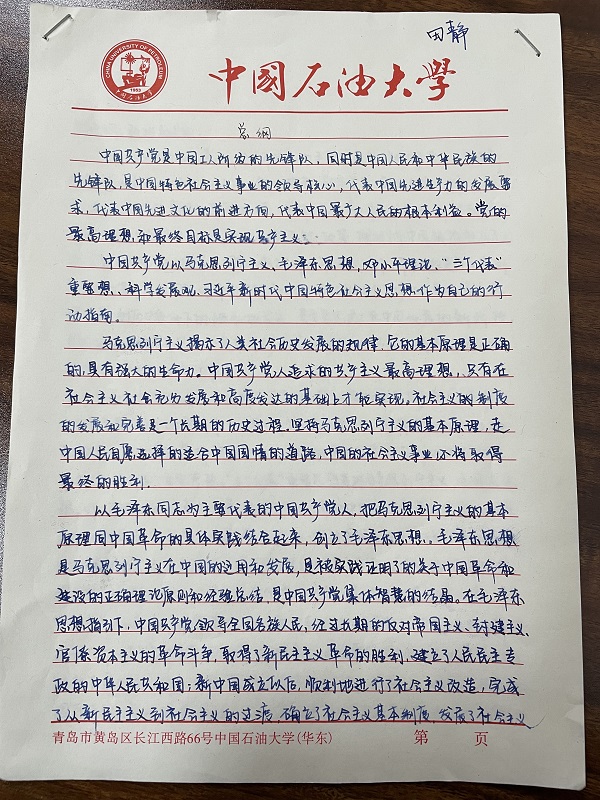 田静
CHINA UNIVERSITY OF PETROLEUM
1953
中国石油大学
中國石油大學
总纲
中国共产党是中国工人阶级的先锋队，同时是中国人民和中华民族的
先锋队，是中国特色社会主义事业的领导核心，代表中国先进生产力的发展要
求，代表中国先进文化的前进方向，代表中国最广大人民的根本利益。党的
最高理想和最终目标是实现共产主义。
中国共产党以马克思列宁主义、毛泽东思想、邓小平理论、“三个代表”
重要思想、科学发展观、习近平新时代中国特色社会主义思想作为自己的行
动指南。
马克思列宁主义揭示了人类社会历史发展的规律，它的基本原理是正确
的，具有强大的生命力。中国共产党人追求的共产主义最高理想，只有在
社会主义社会充分发展和高度发达的基础上才能实现。社会主义的制度
的发展和完善是一个长期的历史过程。坚持马克思列宁主义的基本原理，走
中国人民自愿选择的适合中国国情的道路，中国的社会主义事业必将取得
最终的胜利.
以毛泽东同志为主要代表的中国共产党人，把马克思列宁主义的基本
原理同中国革命的具体实践结合起来，创立了毛泽东思想。毛泽东思想
是马克思列宁主义在中国的运用和发展，是被实践证明了的关于中国革命和
建设的正确理论原则和经验总结，是中国共产党集体智慧的结晶。在毛泽东
思想指引下，中国共产党领导全国各族人民，经过长期的反对帝国主义、封建主义、
官僚资本主义的革命斗争，取得了新民主主义革命的胜利，建立了人民民主专
政的中华人民共和国；新中国成立以后，顺利地进行了社会主义改造，完成
了从新民主主义到社会主义的过渡，确立了社会主义基本制度，发展了社会主义
青岛市黄岛区长江西路66号中国石油大学(华东) 第 页